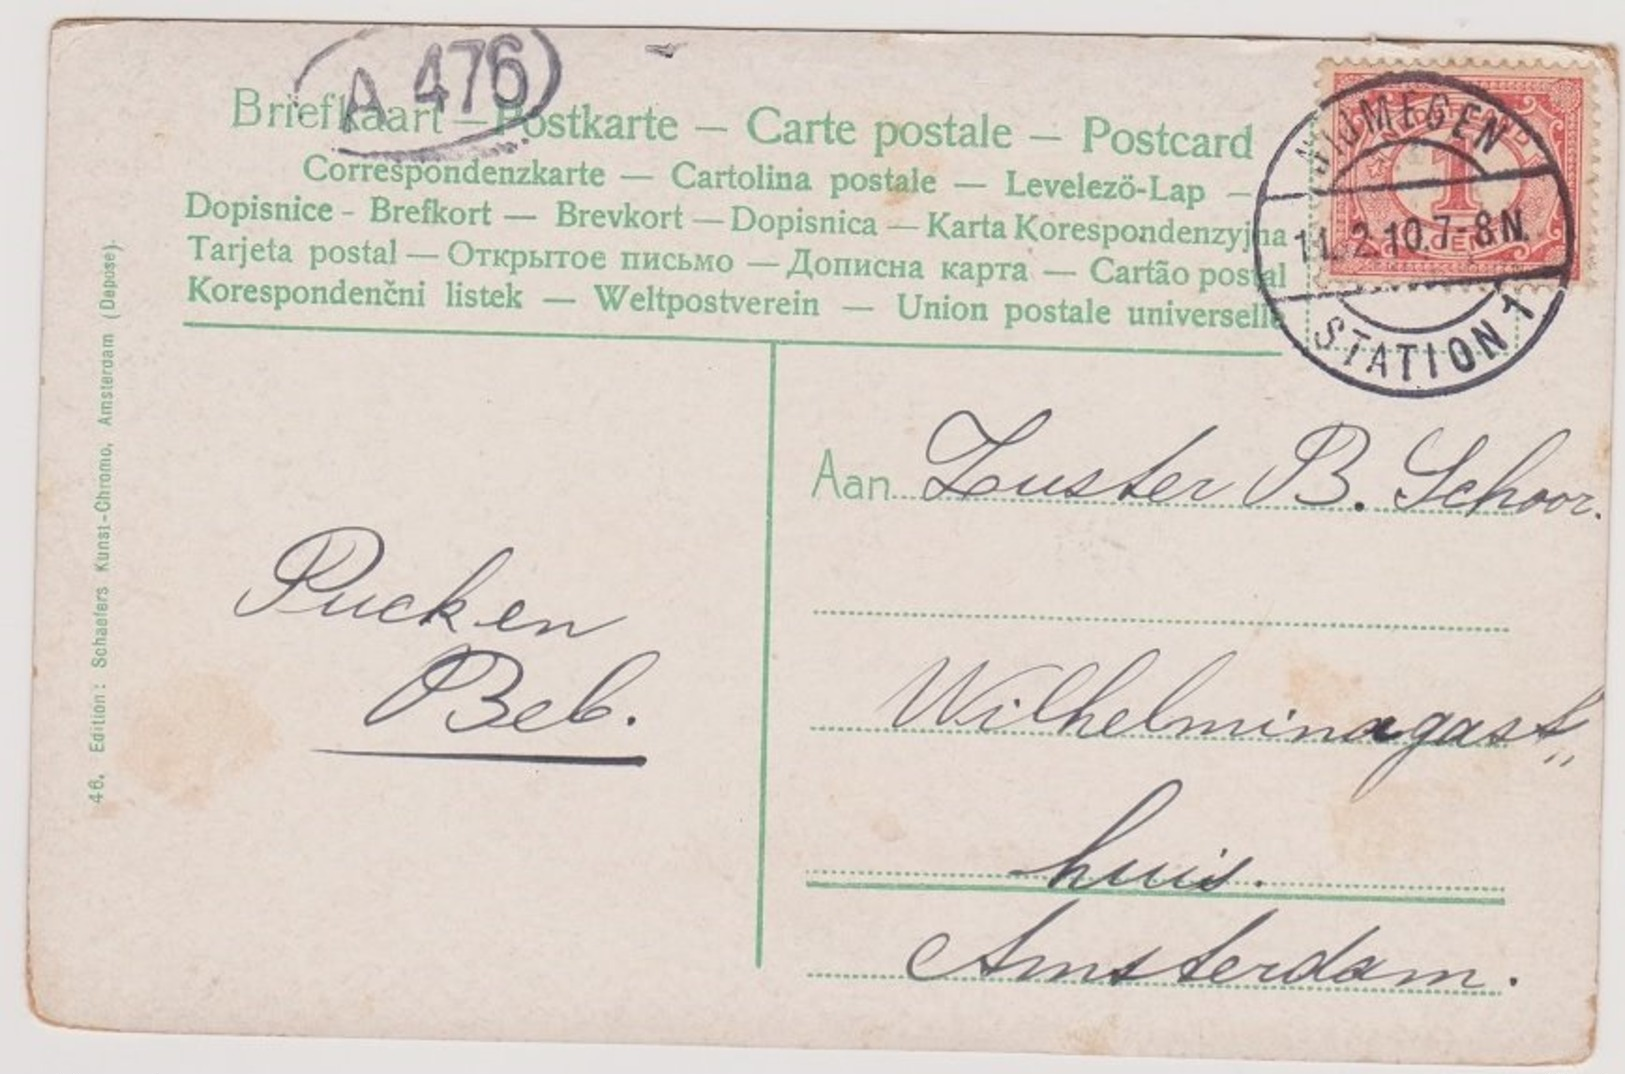 A 476
Briefkaart — Postkarte — Carte postale — Postcard
Correspondenzkarte — Cartolina postale — Levelezö-Lap —
Dopisnice - Brefkort — Brevkort — Dopisnica — Karta Korespondenzyjna
Tarjeta postal — Открытое письмо — Дописна карта — Cartão postal
Korespondenčni listek — Weltpostverein — Union postale universelle
NIJMEGEN
1
11.2.10.7-8N.
CENT
STATION 1
Aan Zuster B. Schoor.
Wilhelminagast„
huis.
Amsterdam.
Pucken
Beb.
46. Edition: Schaefers Kunst-Chromo, Amsterdam (Dapuse).